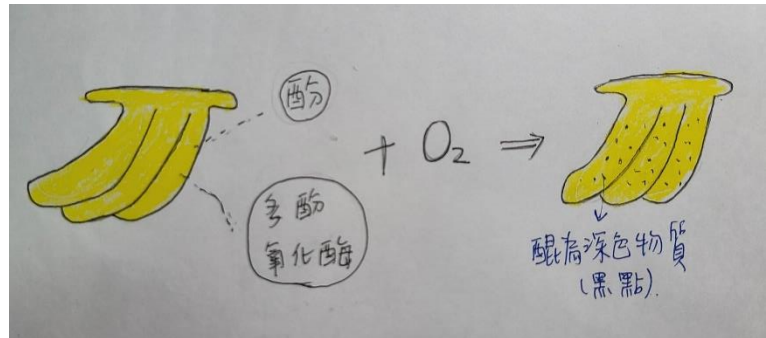 酚
多酚
氧化酶
+ O₂ ⇒
醌為深色物質
(黑點).